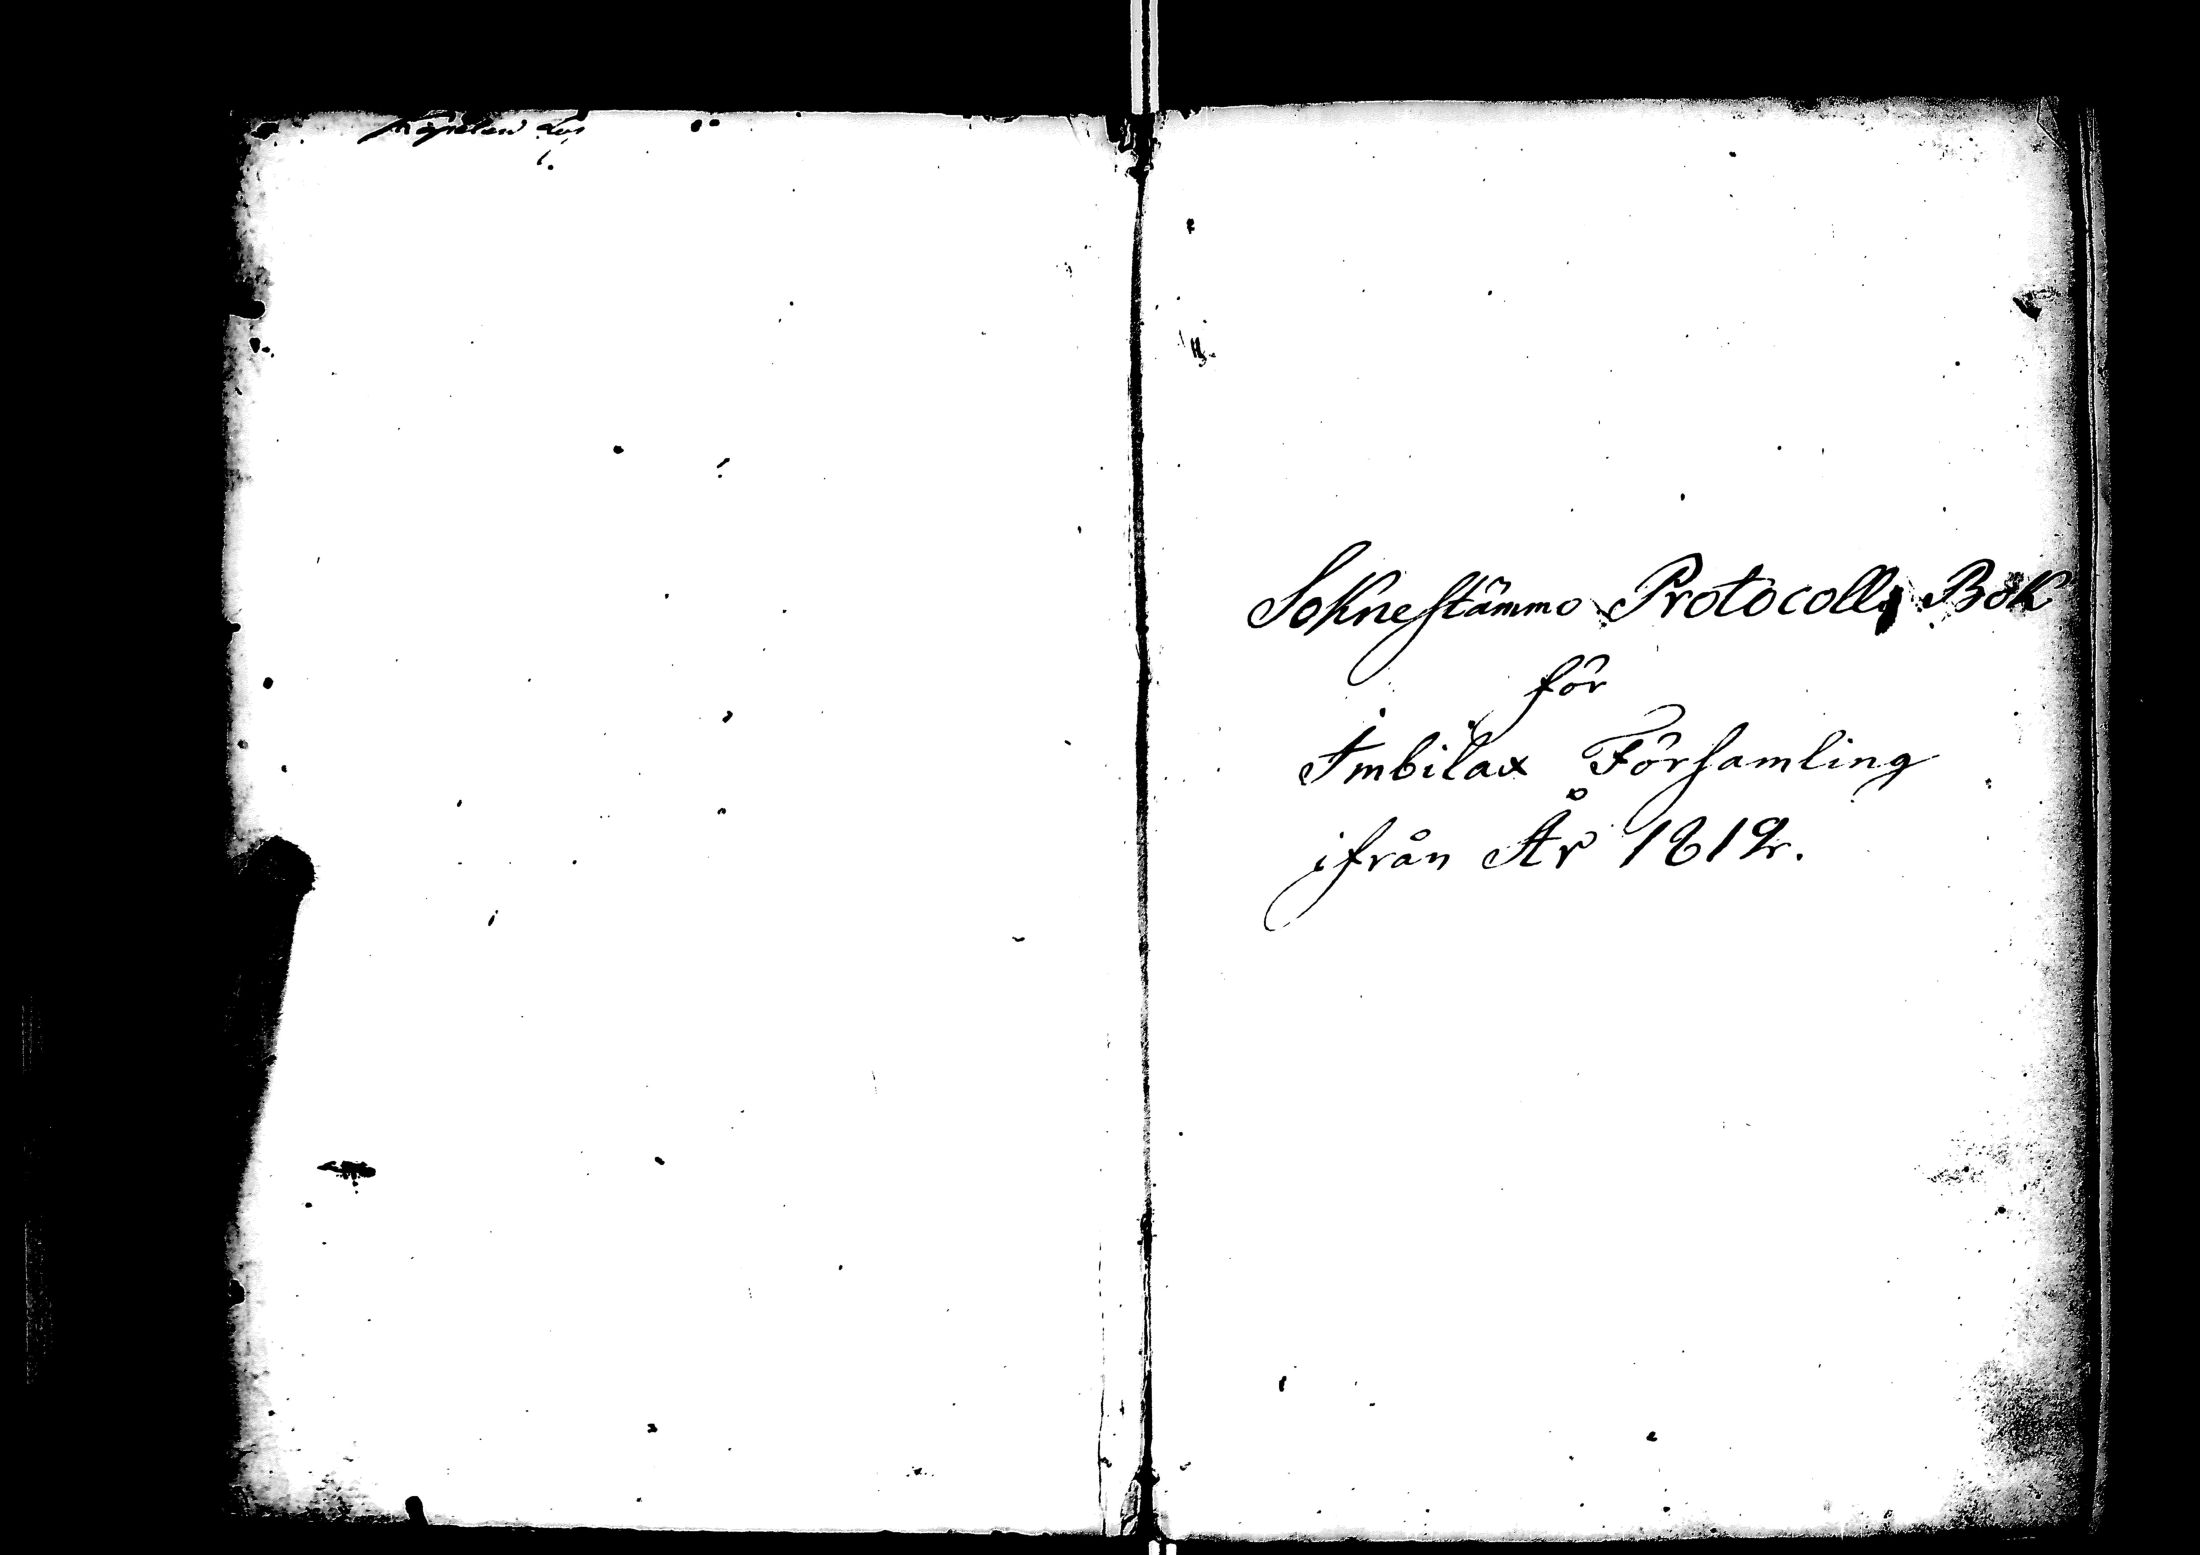 Soknestämmo Protocolls Bok
för
Imbilax Församling
ifrån År 1812.